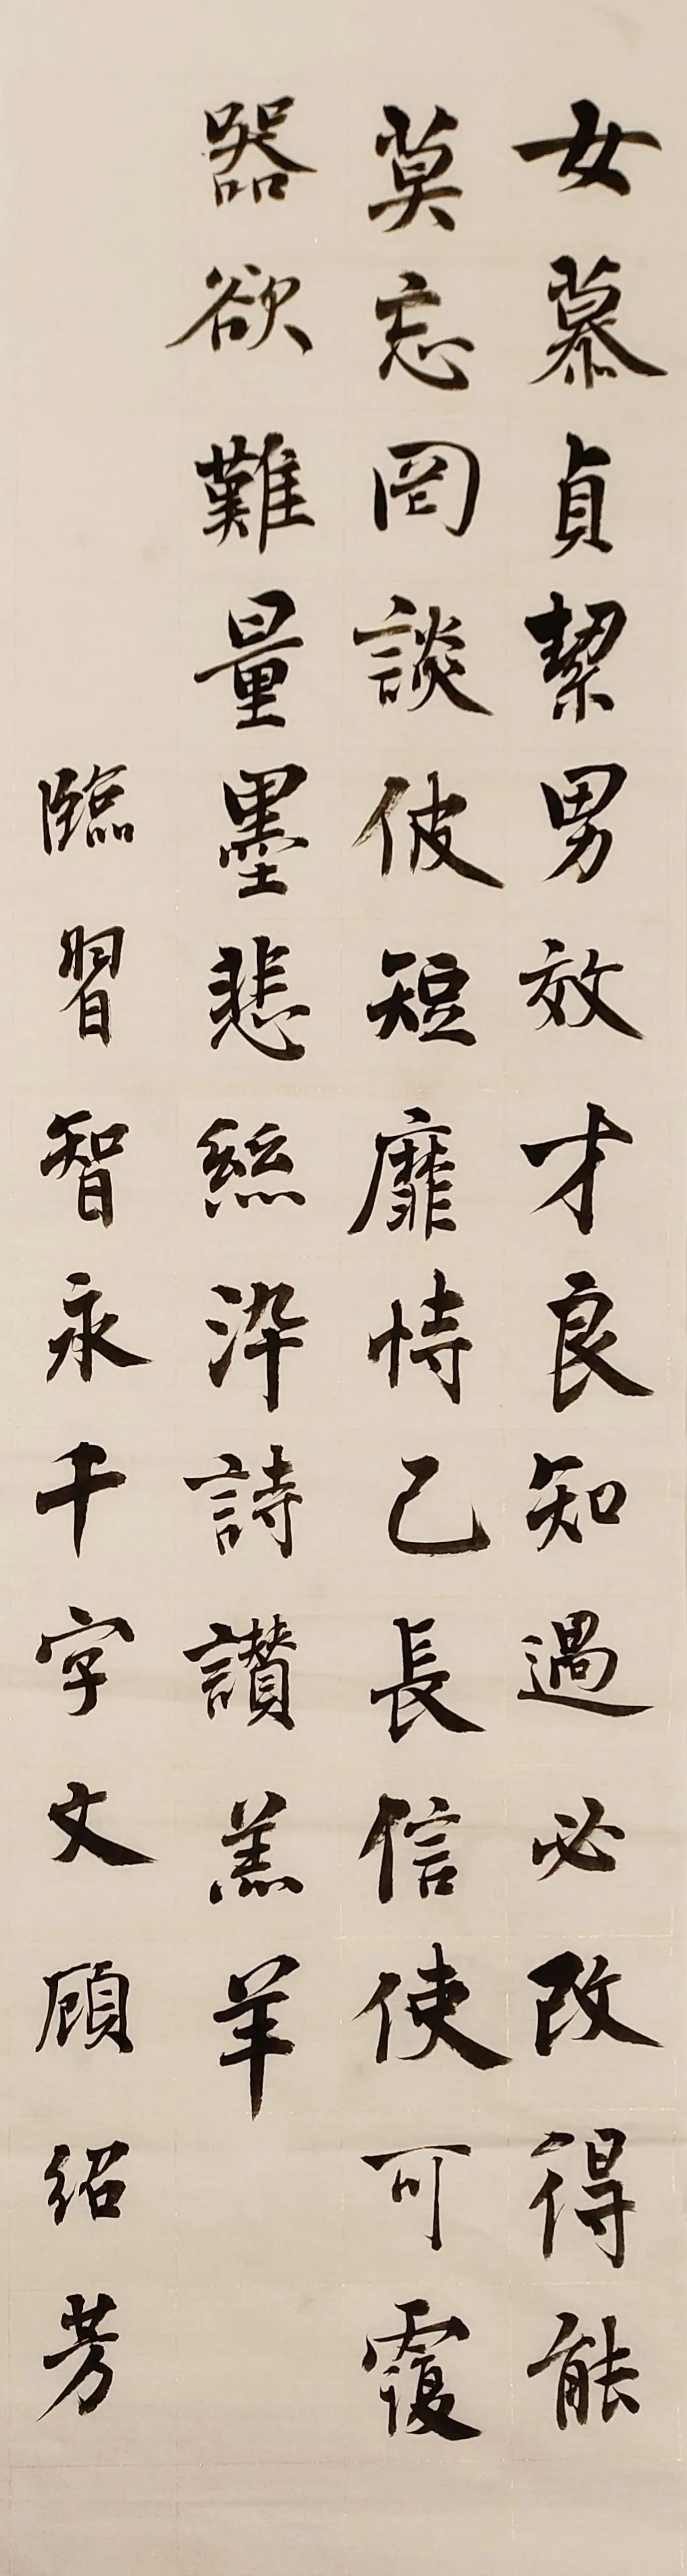 女慕貞絜男效才良知過必改得能
莫忘罔談彼短靡恃己長信使可覆
器欲難量墨悲絲染詩讚羔羊
臨習智永千字文顧紹芳